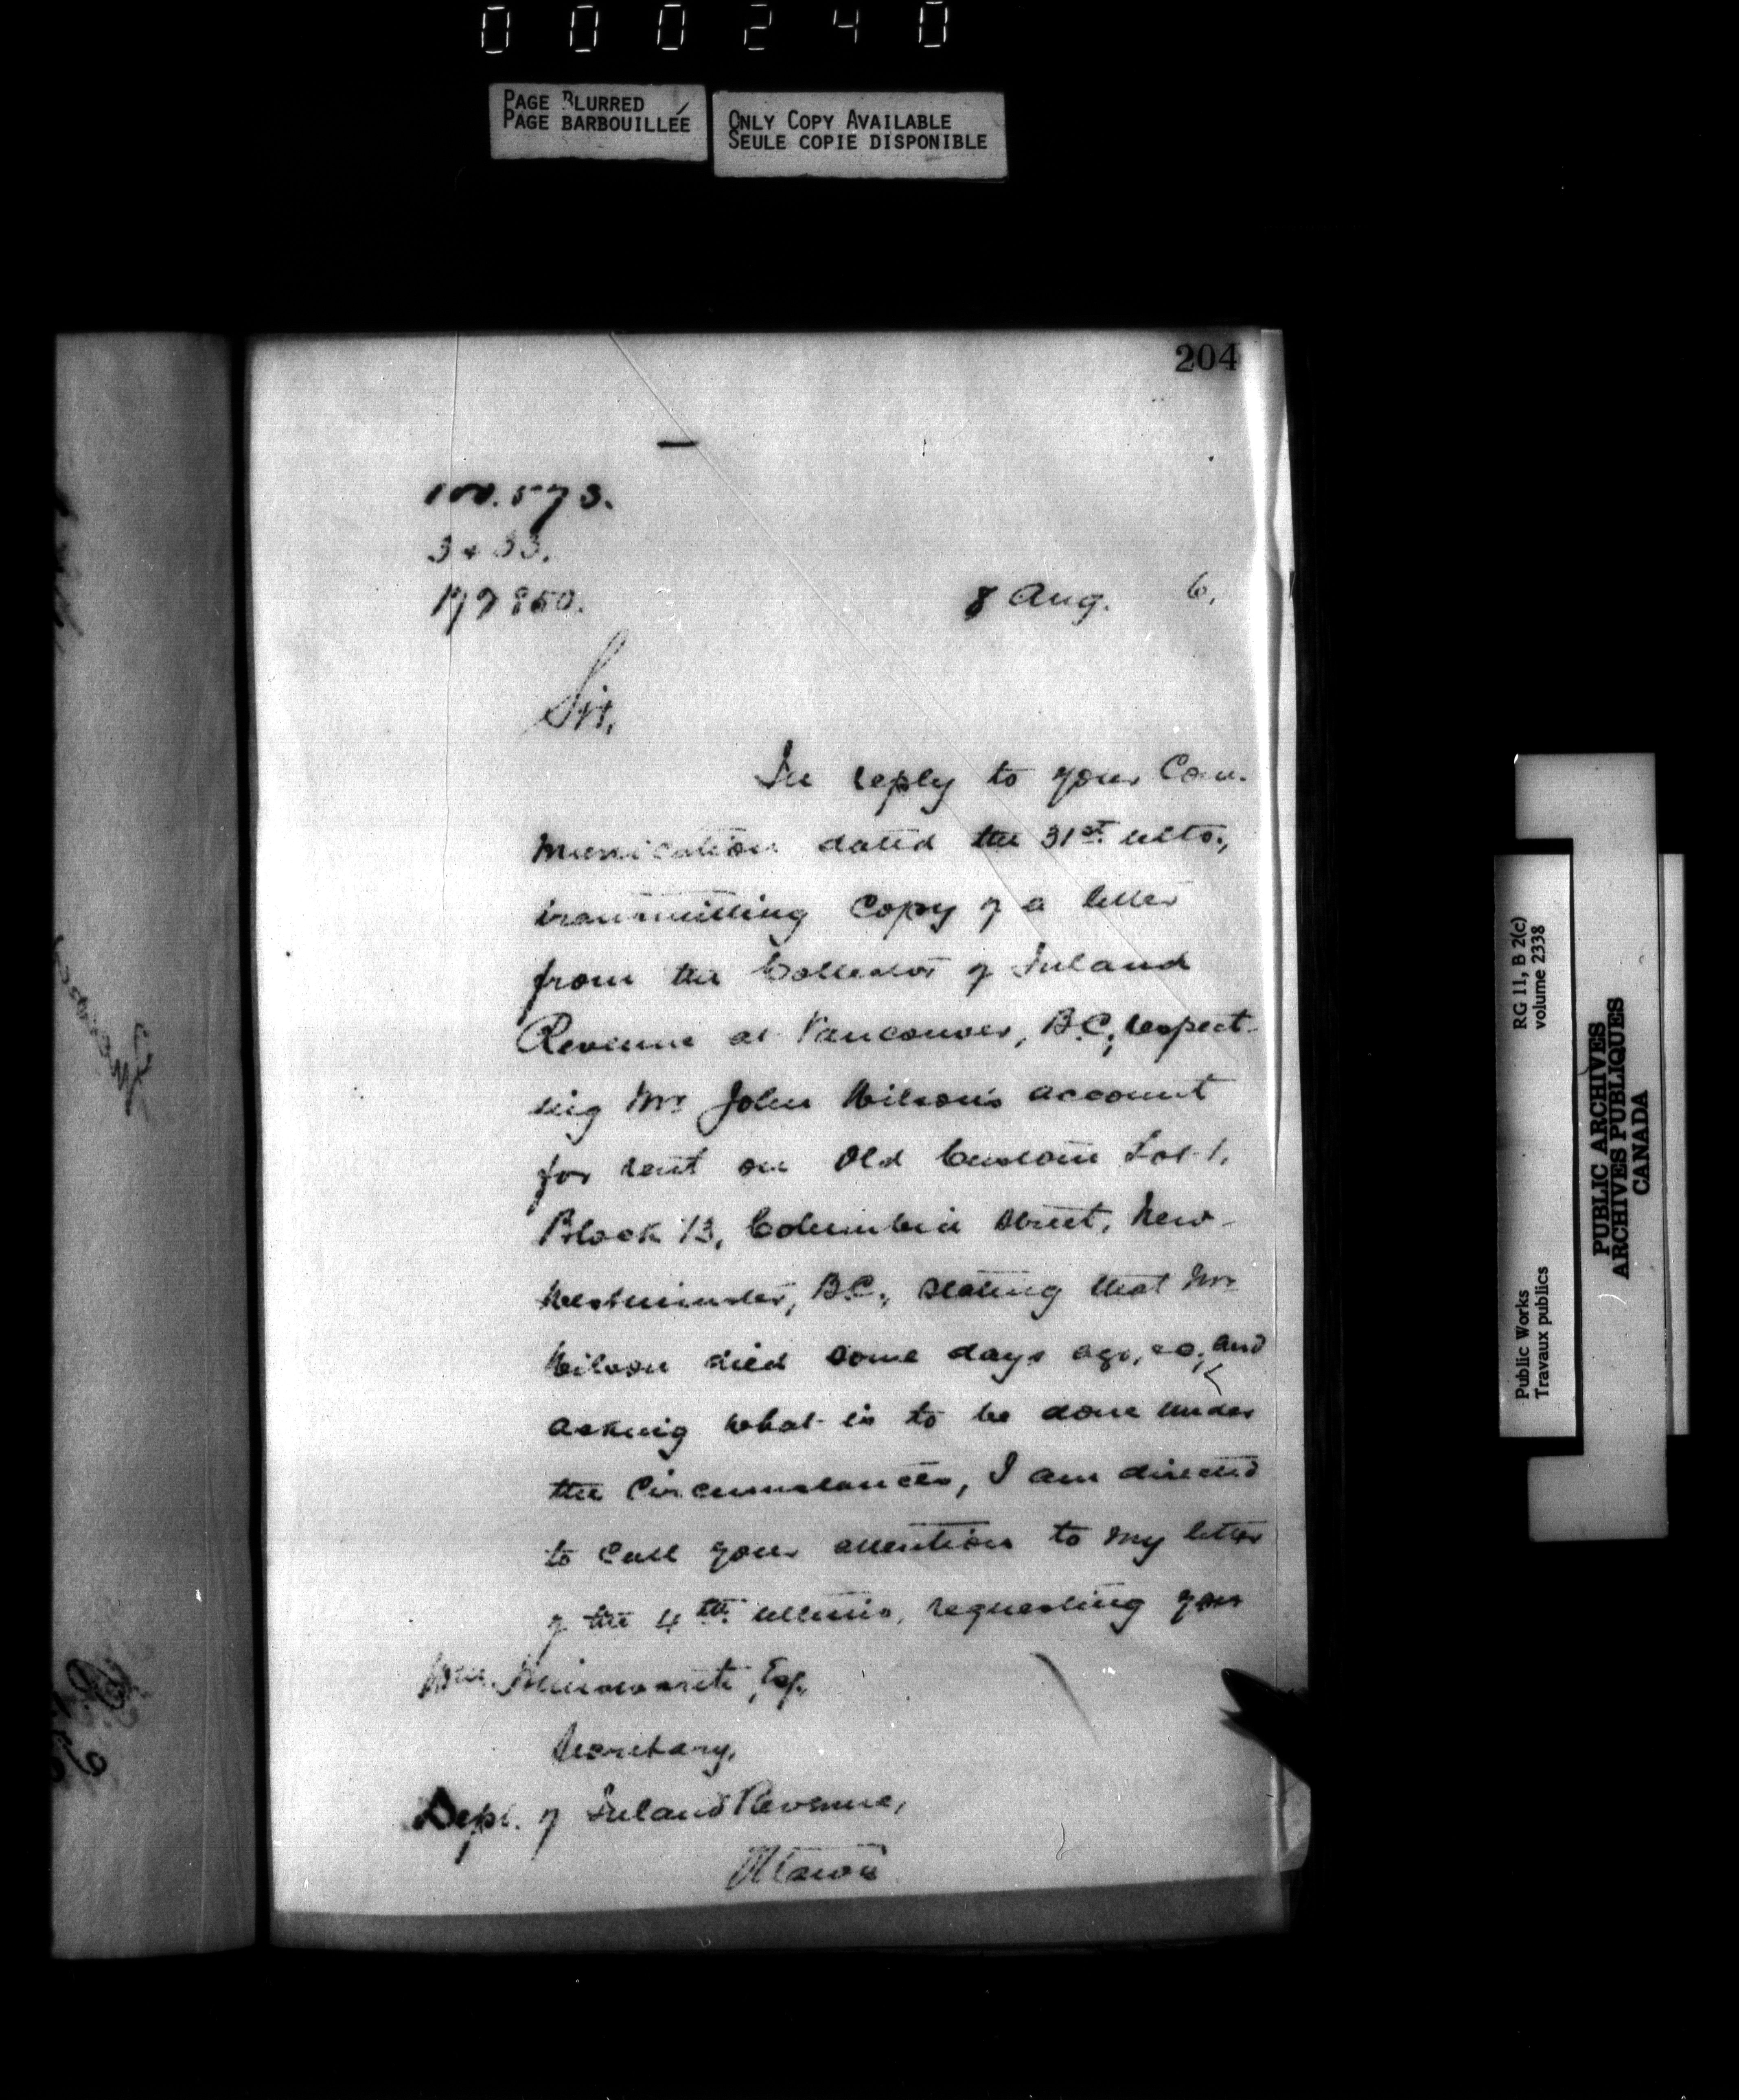 000240
PAGE BLURRED
PAGE BARBOUILLÉE
ONLY COPY AVAILABLE
SEULE COPIE DISPONIBLE
204
100.573.
3433.
177850.
8 Aug. 6.
Sir,
In reply to your Com-
munication dated the 31st. ulto.,
transmitting Copy of a letter
from the Collector of Inland
Revenue at Vancouver, B.C., respect-
ing Mr John Wilson's account
for rent on Old Custom Lot 1,
Block 13, Columbia Street, New-
Westminster, B.C., stating that Mr
Wilson died some days ago, &c., and
asking what is to be done under
the Circumstances, I am directed
to Call your attention to my letter
of the 4th. ultimo, requesting you
Wm. Himsworth, Esq.,
Secretary,
Dept. of Inland Revenue,
Ottawa
Public Works
Travaux publics
RG 11, B 2(c)
volume 2338
PUBLIC ARCHIVES
ARCHIVES PUBLIQUES
CANADA